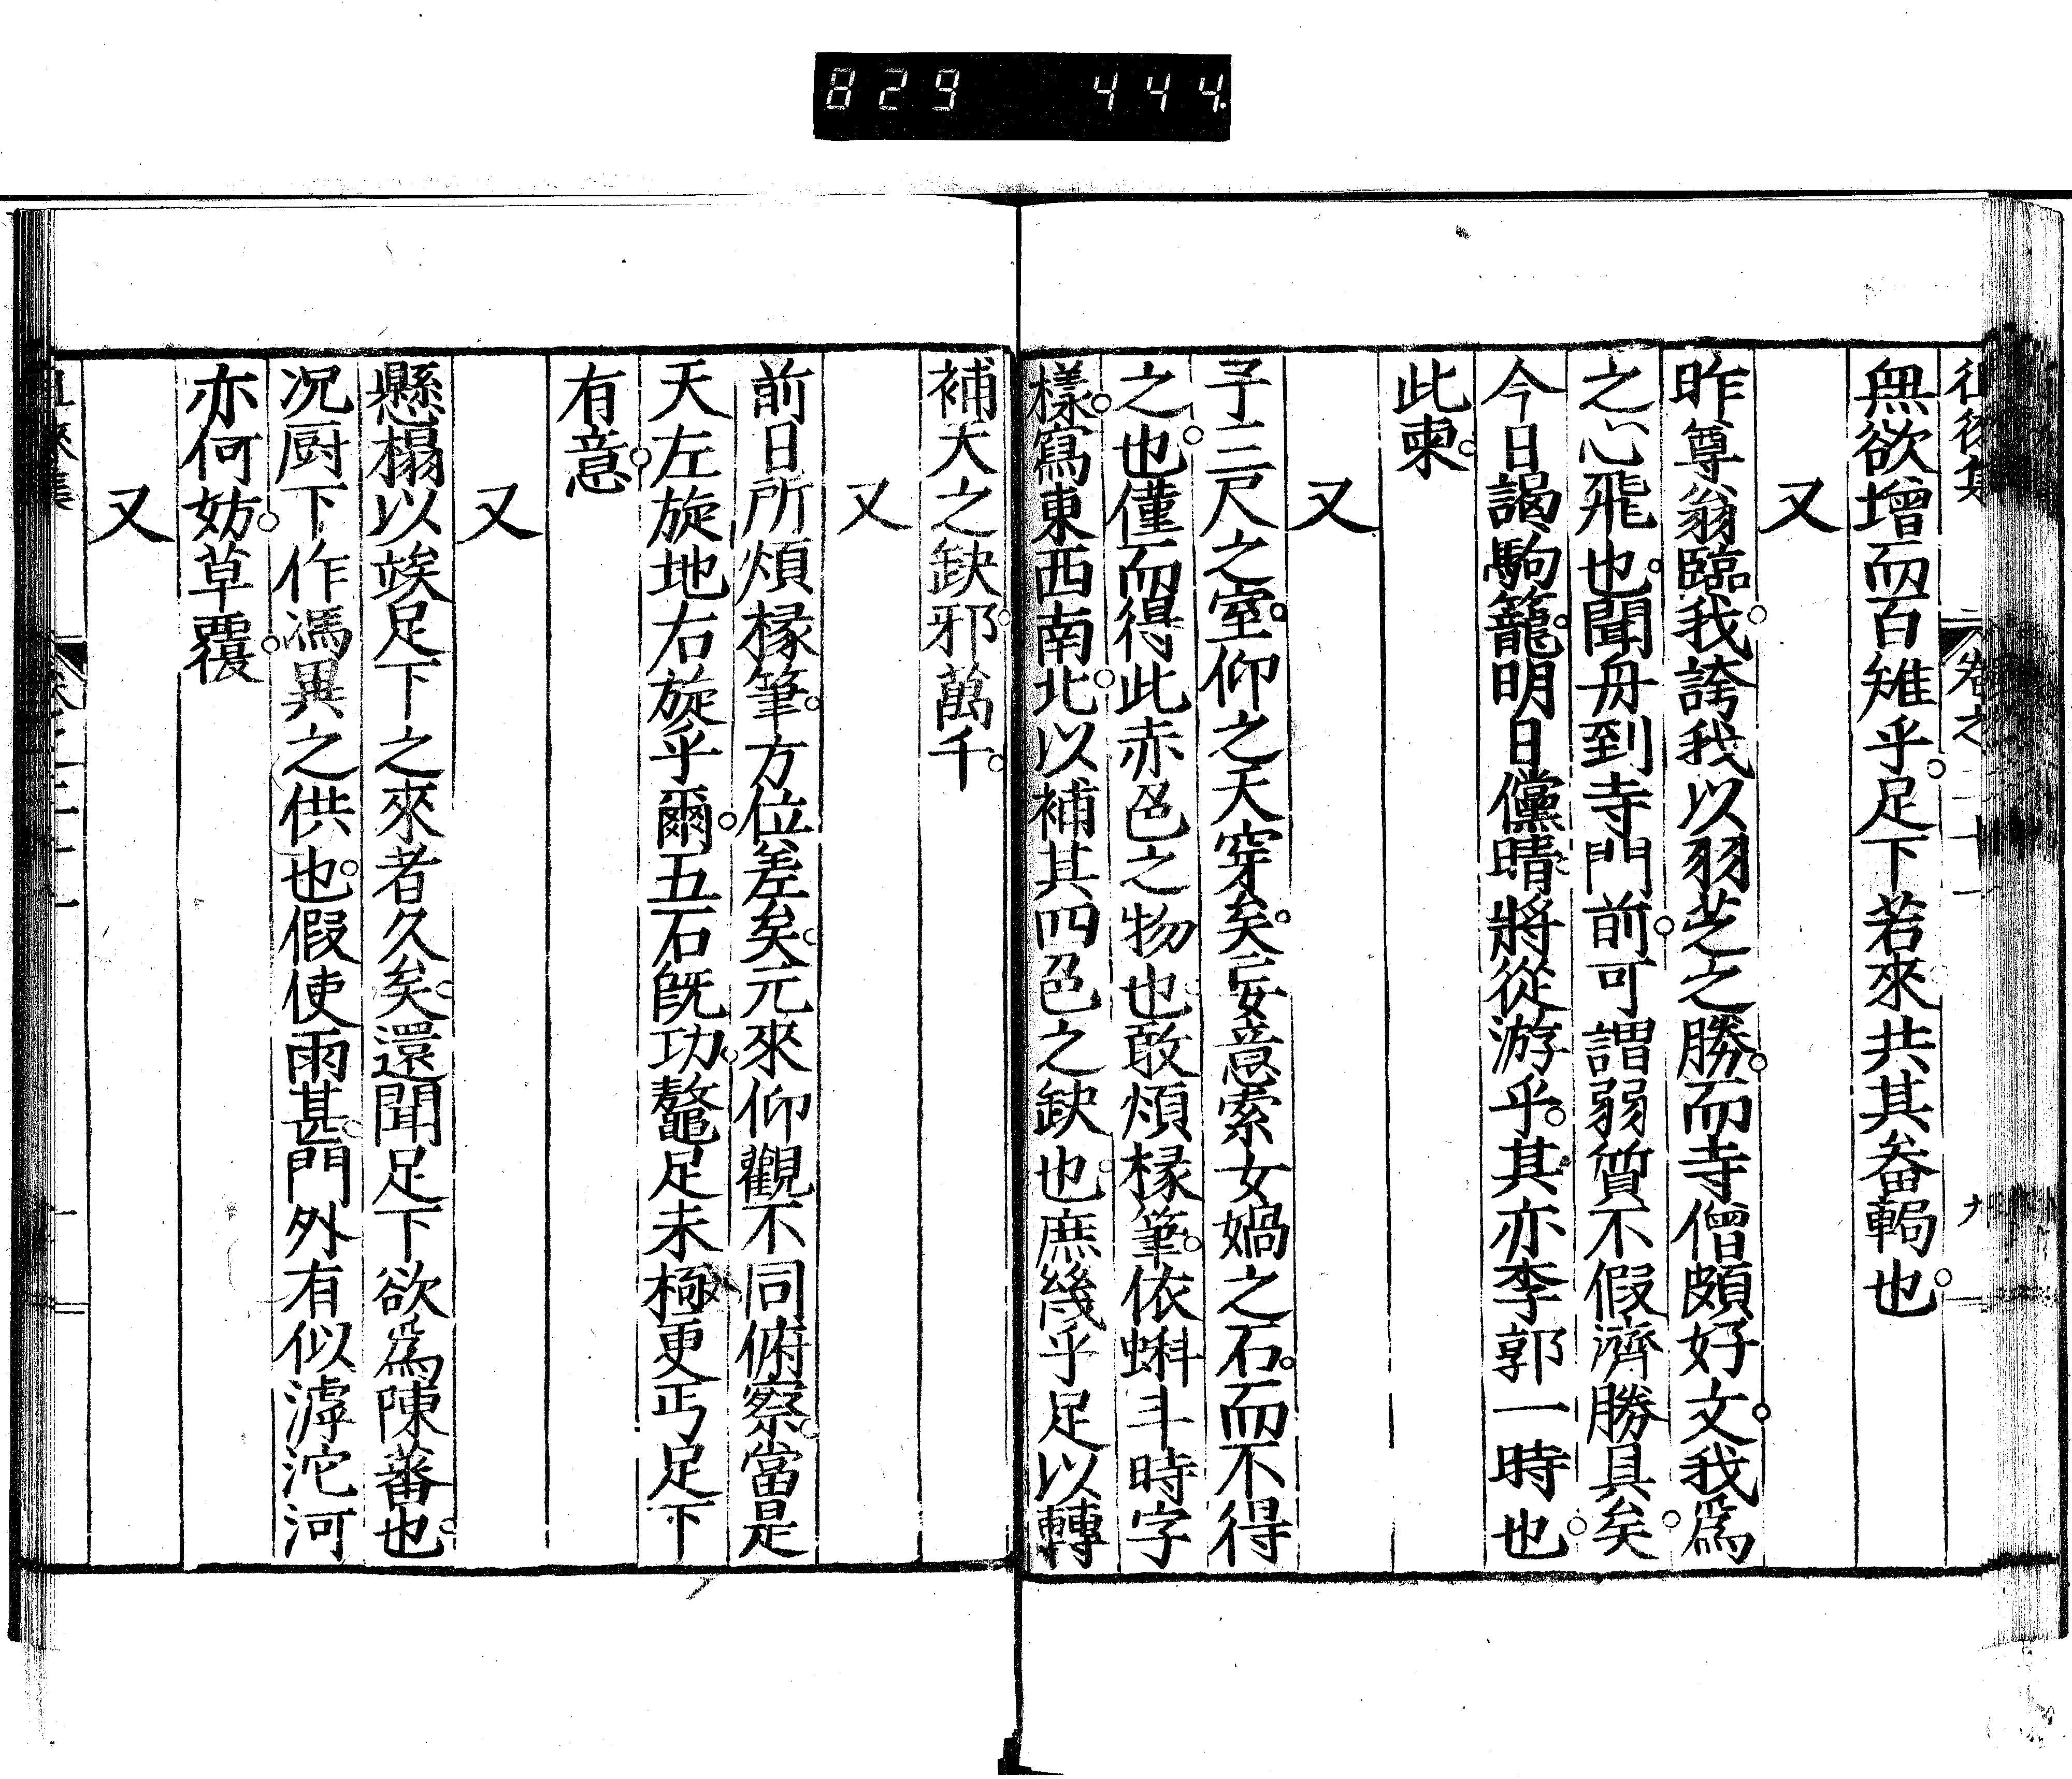 829 444.
無欲增而百雉乎足下若來共其畚輂也
又
昨尊翁臨我誇我以羽芝之勝而寺僧頗好文我爲
之心飛也聞舟到寺門前可謂弱質不假濟勝具矣
今日謁駒籠明日儻晴將從游乎其亦李郭一時也
此柬
又
子三尺之室仰之天穿矣妄意索女媧之石而不得
之也僅而得此赤色之物也敢煩椽筆依蝌斗時字
樣寫東西南北以補其四色之缺也庶幾乎足以轉
補天之缺邪萬千
又
前日所煩椽筆方位差矣元來仰觀不同俯察當是
天左旋地右旋乎爾五石既功鼇足未極更丐足下
有意
又
懸榻以竢足下之來者久矣還聞足下欲爲陳蕃也
况厨下作馮異之供也假使雨甚門外有似滹沱河
亦何妨草覆
又